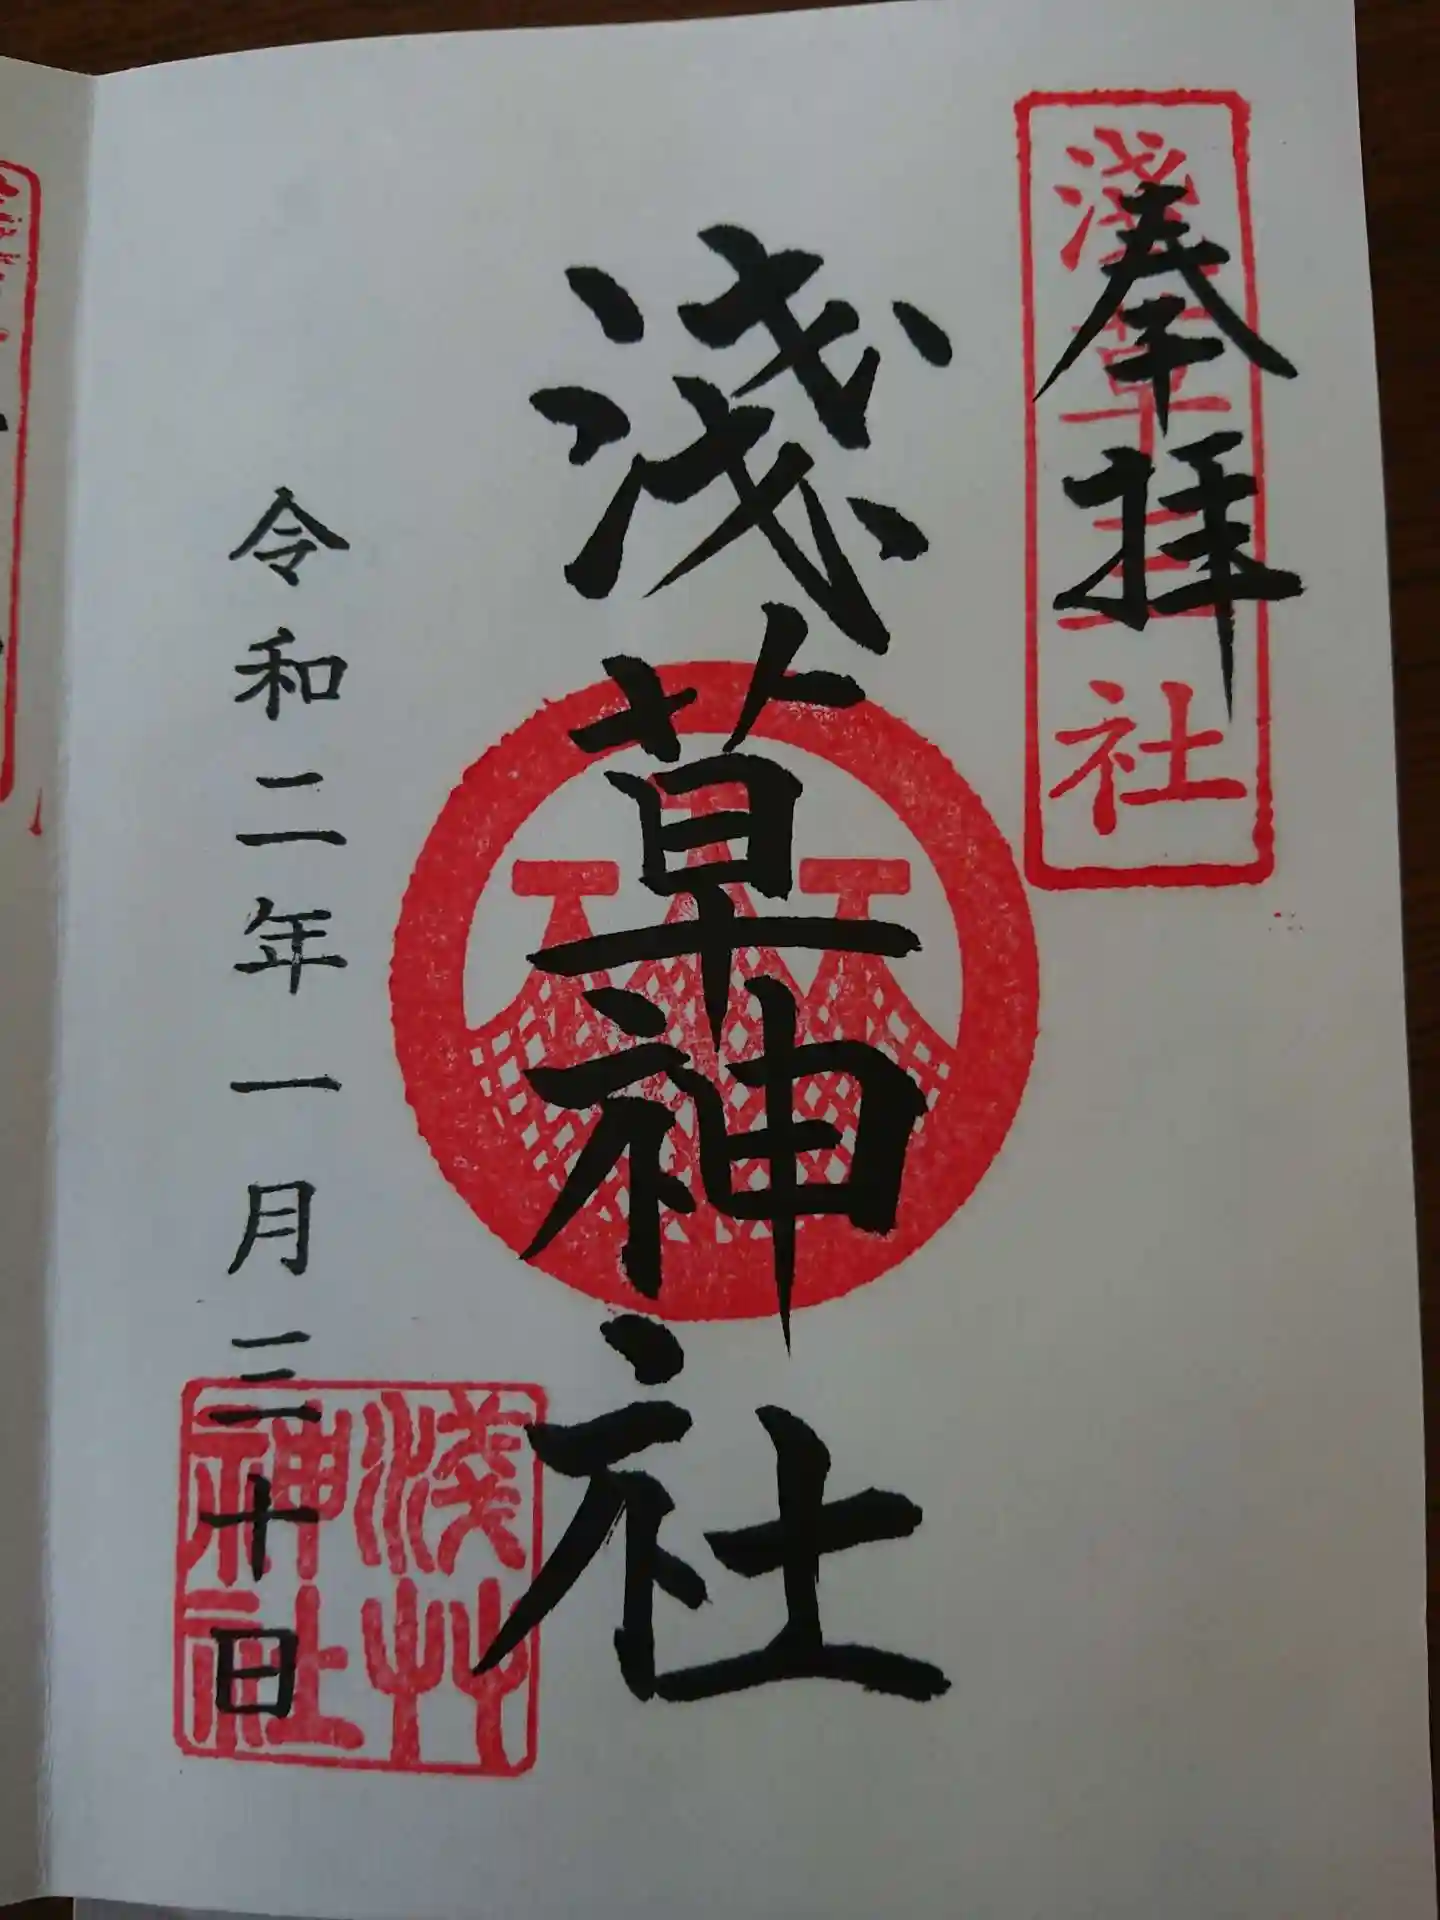 奉拝
淺草三社
淺草神社
令和二年一月三十日
淺草
神社